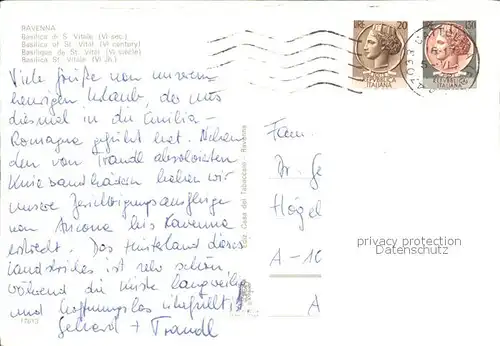 RAVENNA
Basilica di S. Vitale (VI sec.)
Basilica of St. Vital (VI century)
Basilique de St. Vital (VI siècle)
Basilica St. Vitale (VI Jh.)
Viele Grüße von unserem
heurigen Urlaub, der uns
diesmal in die Emilia-
Romagna geführt hat. Neben
den von Trandl absolvierten
haben wir
unsere Besichtigungsausflüge
von Ancona bis Ravenna
erstreckt. Das Hinterland dieses
Landstriches ist sehr schön,
während die Küste langweilig
und hoffnungslos überfüllt is
Gehard + Trandl
17813
Ediz. Casa del Tabaccaio - Ravenna
LIRE 20
REPUBBLICA
ITALIANA
REPUBBLICA
ITALIANA
Fam.
Dr. Ge
Högel
A-10
A
privacy protection
Datenschutz